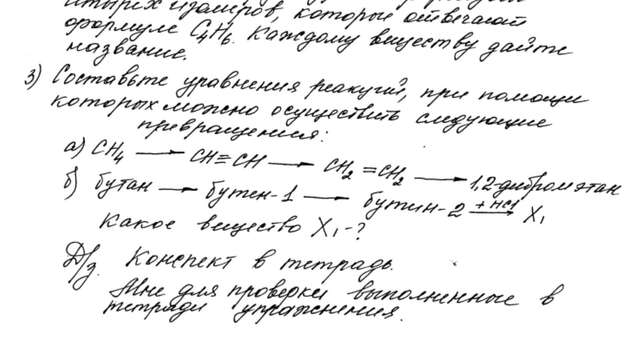 тырёх изомеров, которые отвечают
формуле C4H6. Каждому веществу дайте
название.
3) Составьте уравнения реакций, при помощи
которых можно осуществить следующие
превращения:
а) CH4 → CH≡CH → CH2=CH2 → 1,2-дибромэтан
б) бутан → бутен-1 → бутин-2 +HCl→ X1
Какое вещество X1-?
Д/з. Конспект в тетрадь.
Мне для проверки выполненные в
тетради упражнения.